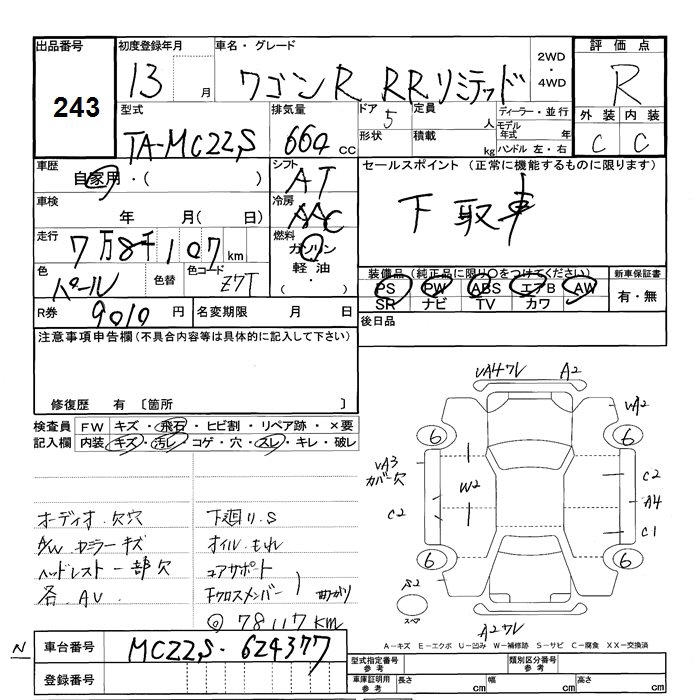 出品番号 初度登録年月 車名・グレード 2WD・4WD 評価点
243 13 月 ワゴンR RRリミテッド R
型式 排気量 ドア 定員 ディーラー・並行 外装 内装
TA-MC22S 660 cc 5 人 モデル年式 年 C C
形状 積載 kg ハンドル 左・右
車歴 シフト セールスポイント (正常に機能するものに限ります)
自家用・( ) AT 下取車
車検 年 月( 日) 冷房 AAC
走行 7万8千107km 燃料 ガソリン 軽油・( )
色 色替 色コード 装備品(純正品に限り○をつけてください) 新車保証書
パール Z7T PS PW ABS エアB AW 有・無
SR ナビ TV カワ
R券 9010 円 名変期限 月 日 後日品
注意事項申告欄(不具合内容等は具体的に記入して下さい)
修復歴 有 〔箇所 〕
検査員 FW キズ・飛石・ヒビ割・リペア跡・×要
記入欄 内装 キズ・汚レ・コゲ・穴・スレ・キレ・破レ
UA4ワレ A2
UA2
6 6
UA3 カバー欠 W2 C2
C2 A4
C1
6 6
S2 スペア
A2ワレ
オーディオ欠穴 下廻り.S
A/Wカラーキズ オイルもれ
ヘッドレスト一部欠 コアサポート
各.AU. Fクロスメンバー 曲がり
◎78117km
N 車台番号 MC22S-624377
登録番号
A-キズ E-エクボ U-凹み W-補修跡 S-サビ C-腐食 XX-交換済
型式指定番号 参考 類別区分番号 参考
車庫証明用 参考 長さ cm 幅 cm 高さ cm